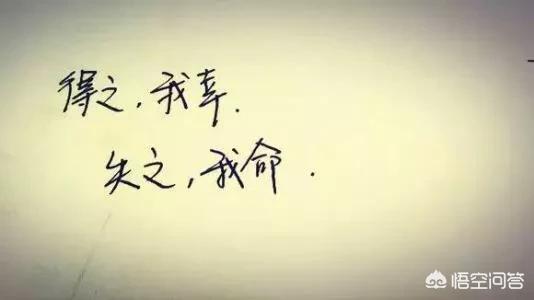 得之，我幸.
失之，我命.
悟空问答